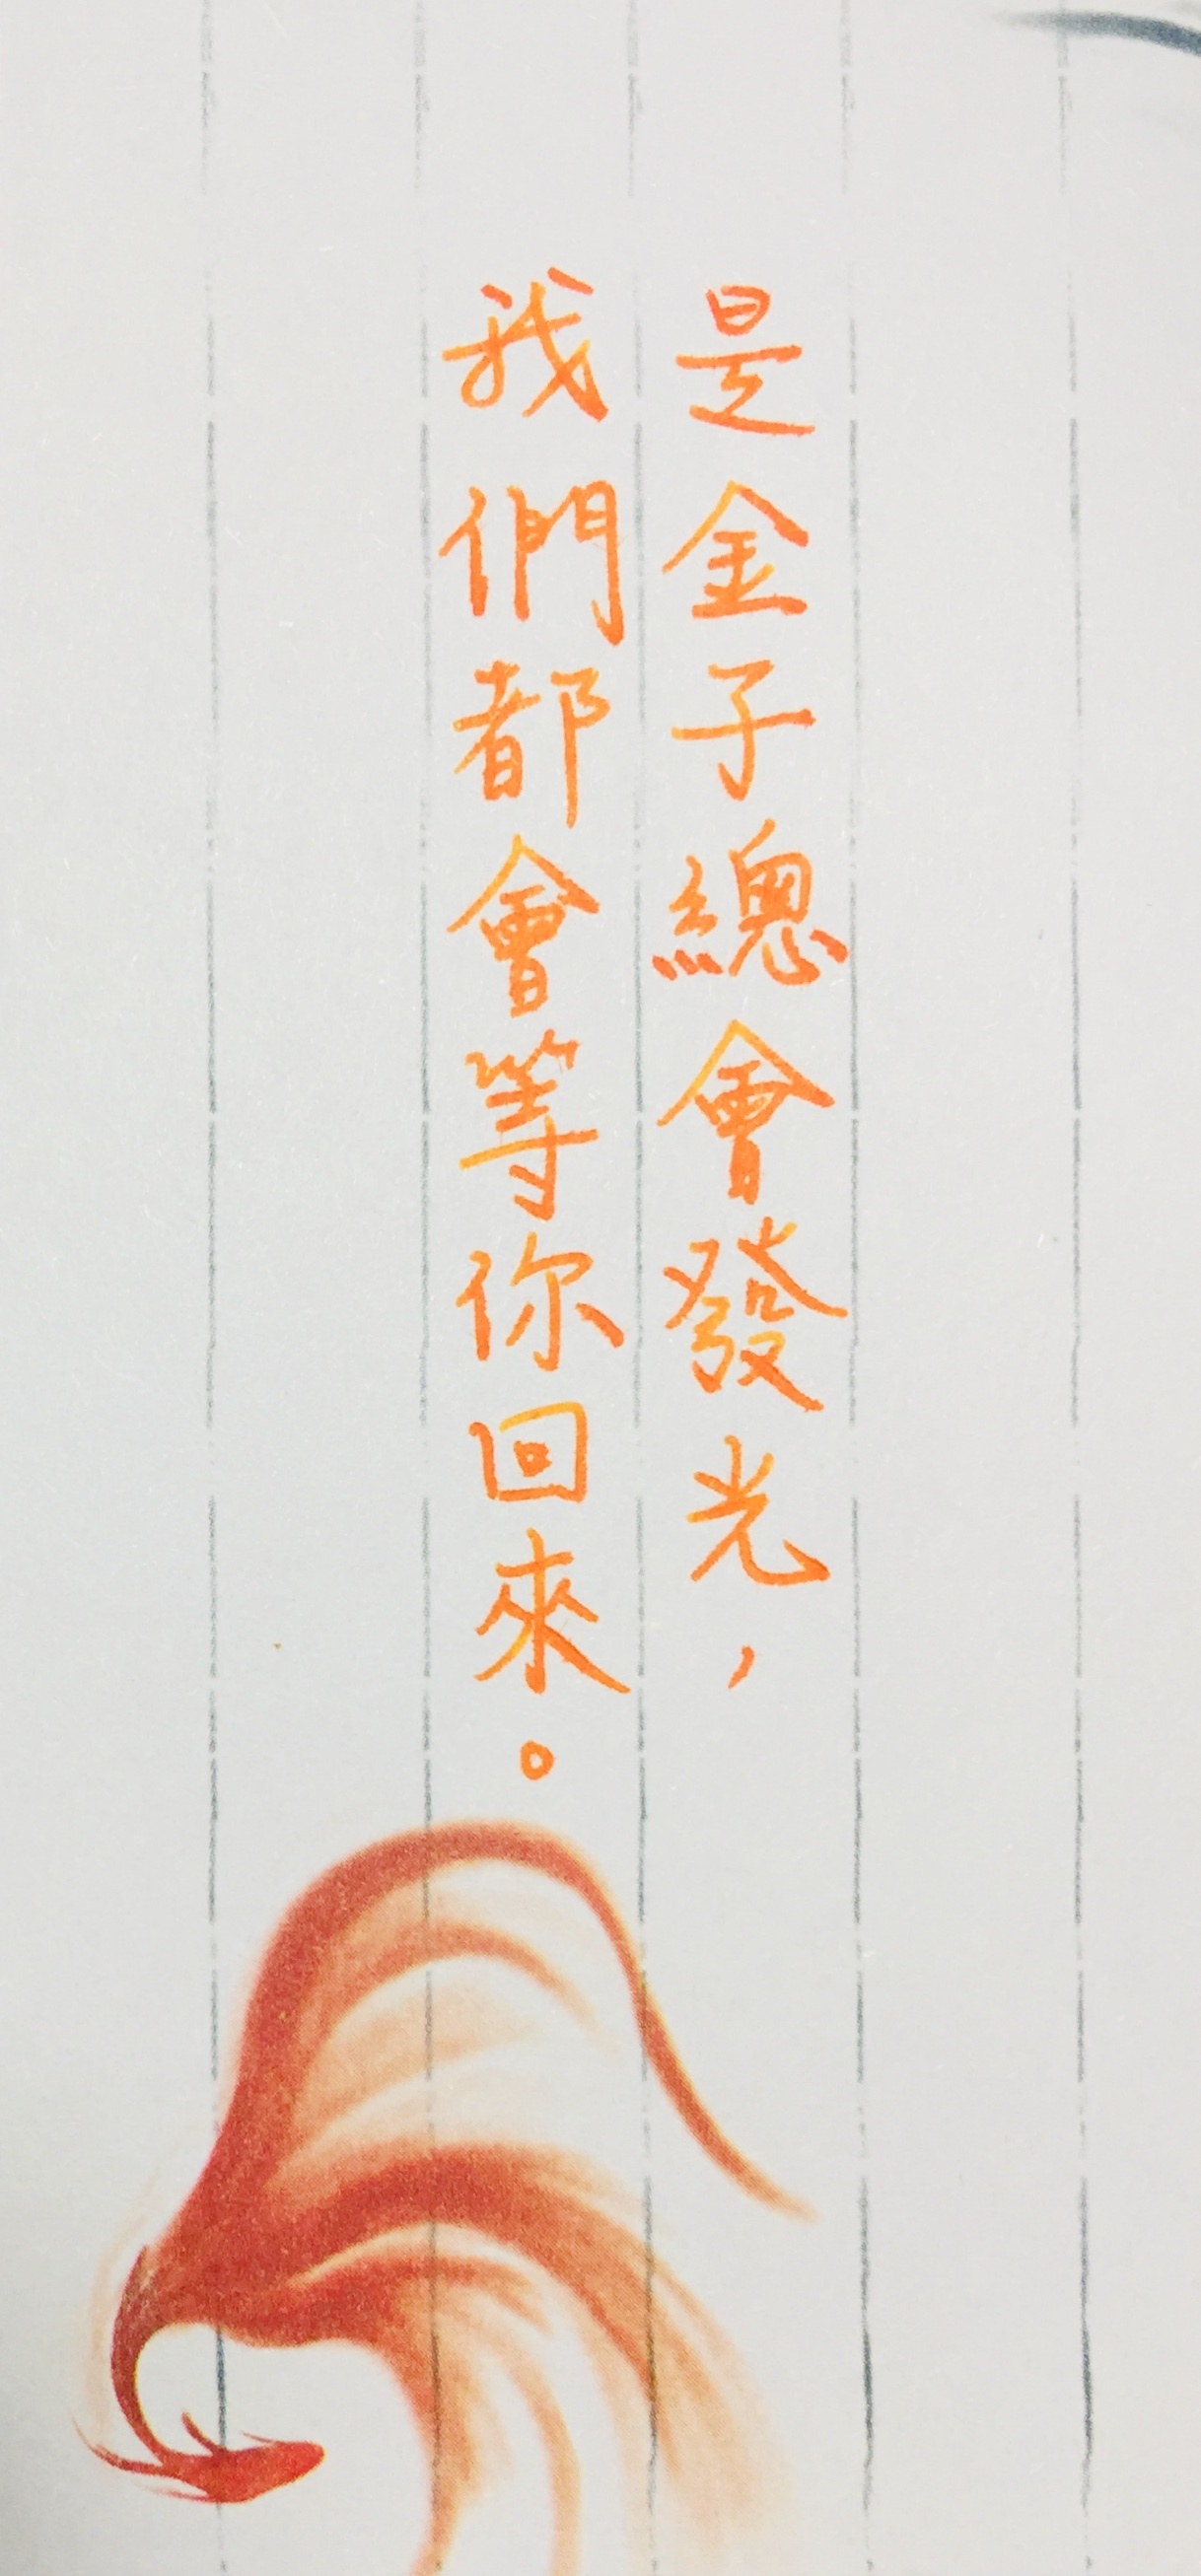 是金子總會發光，
我們都會等你回來。